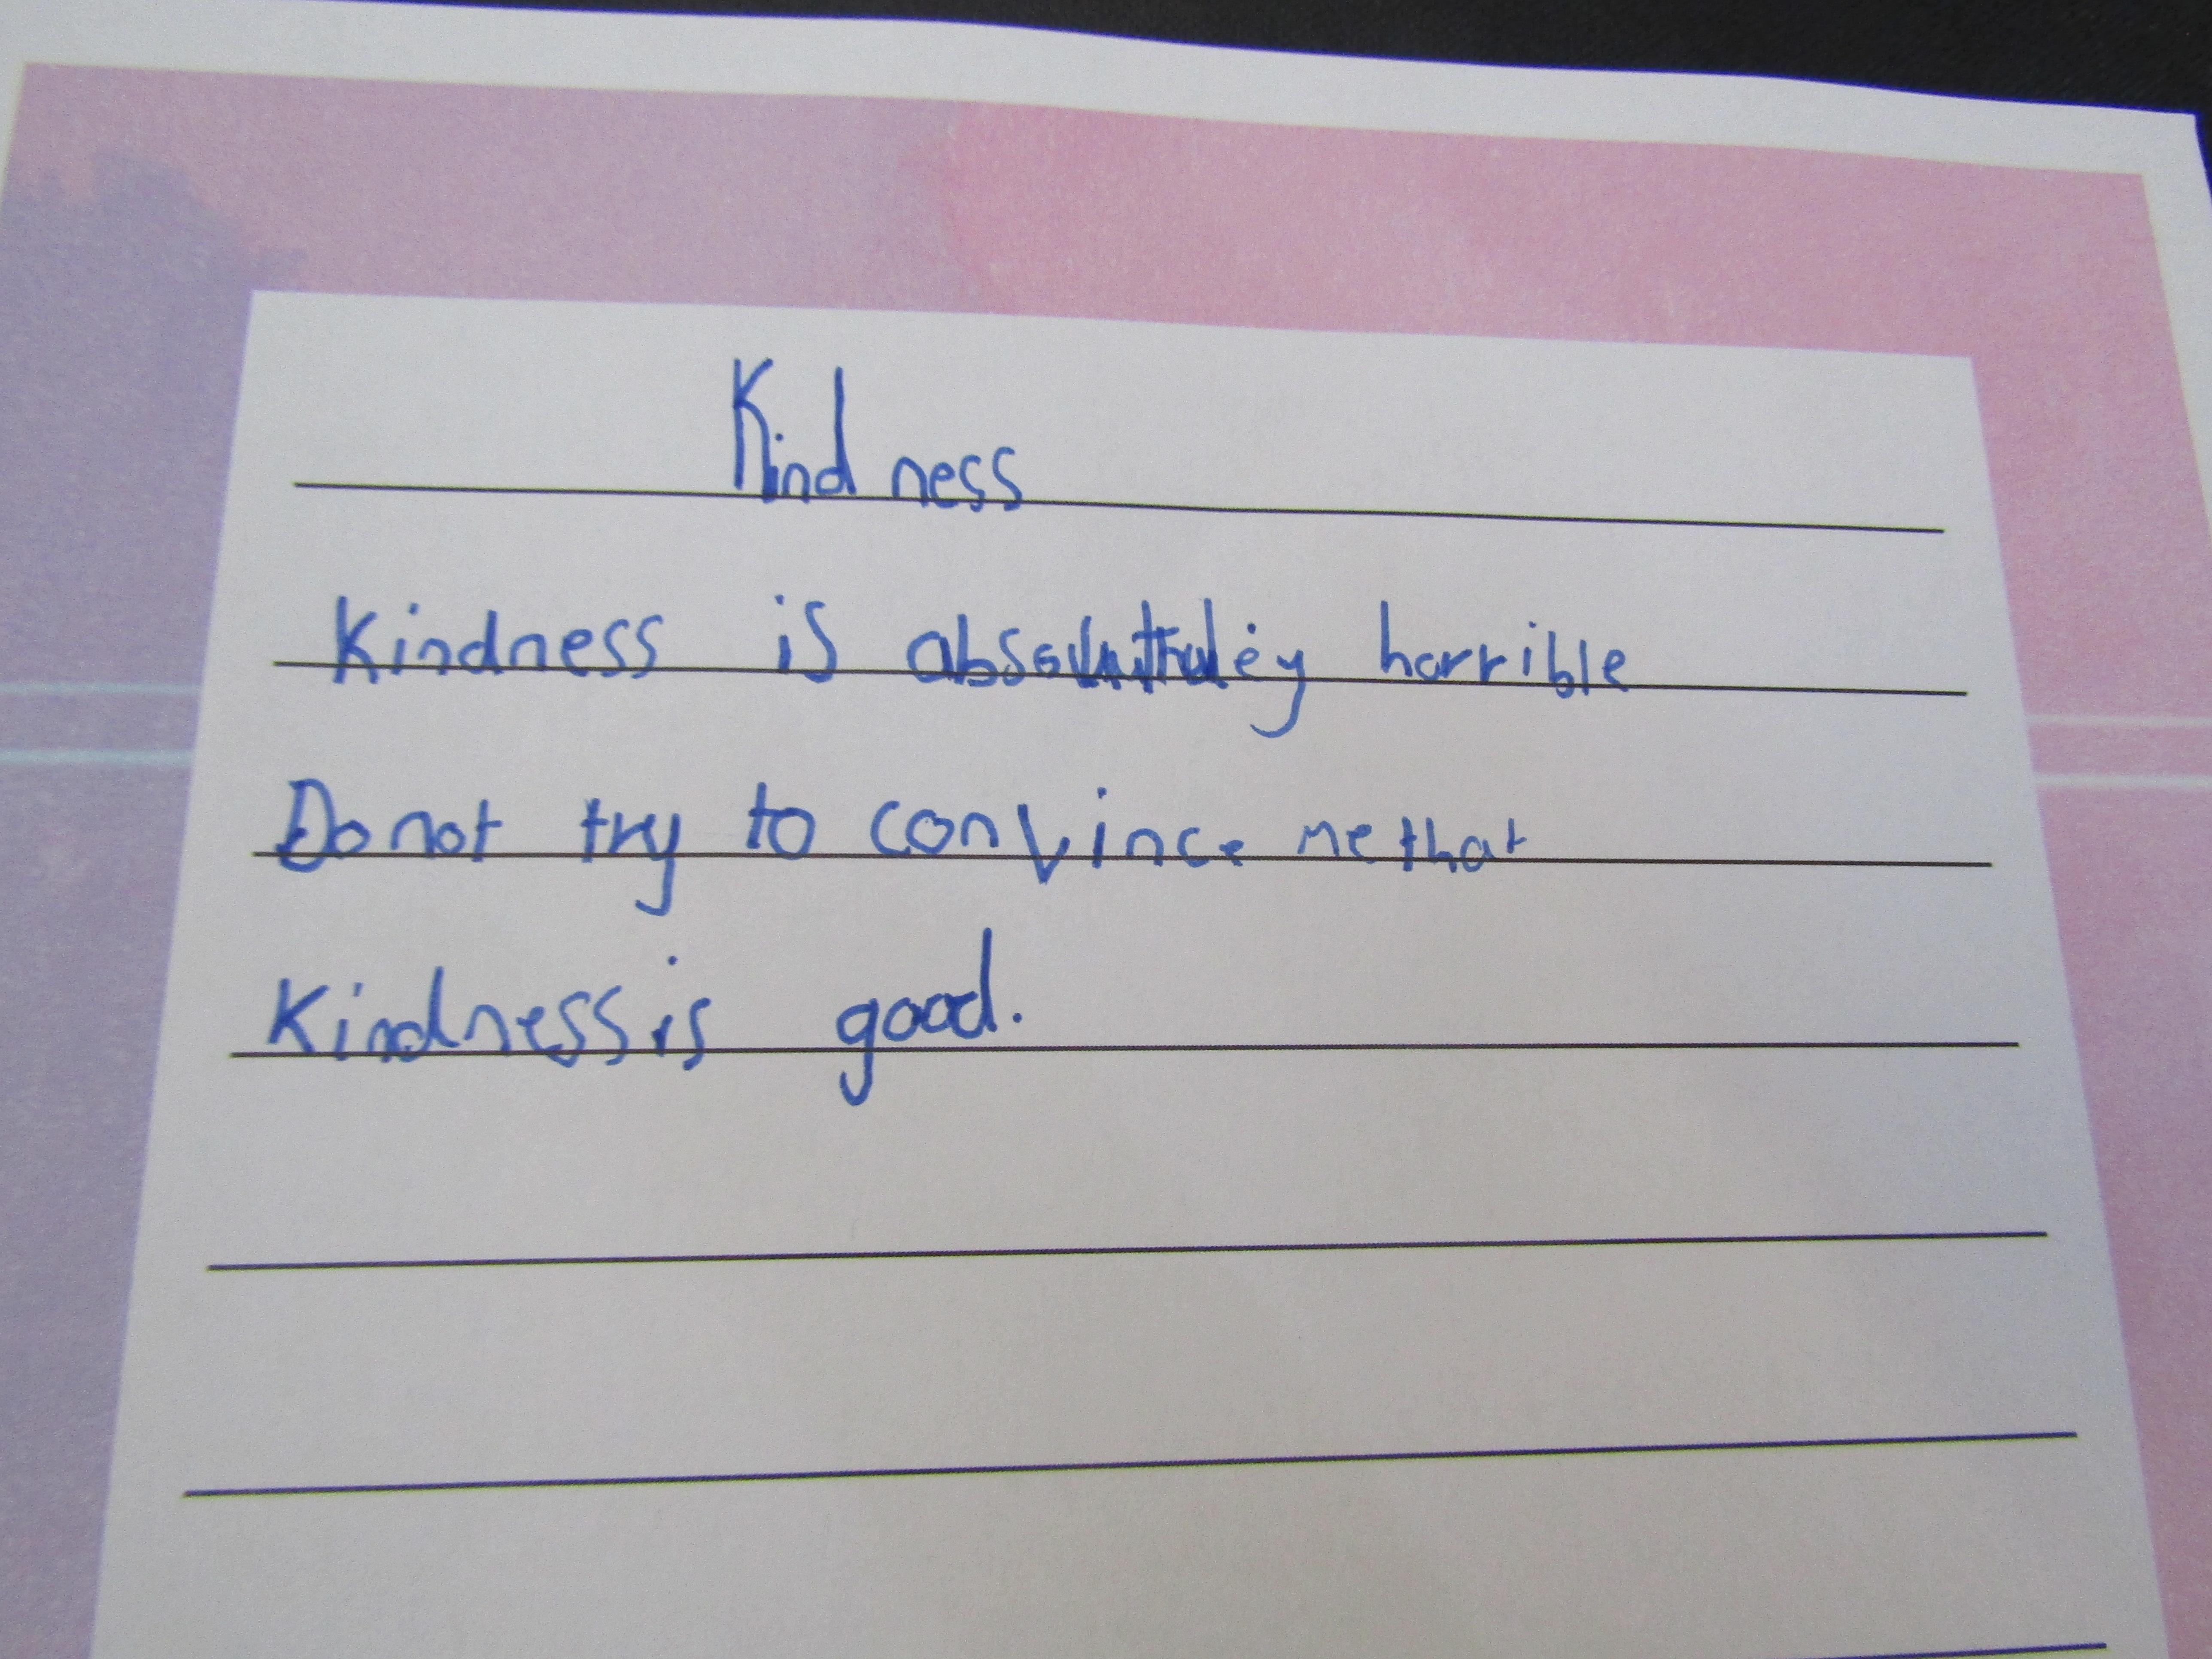 Kindness
Kindness is horrible
Do not try to convince me that
Kindness is good.